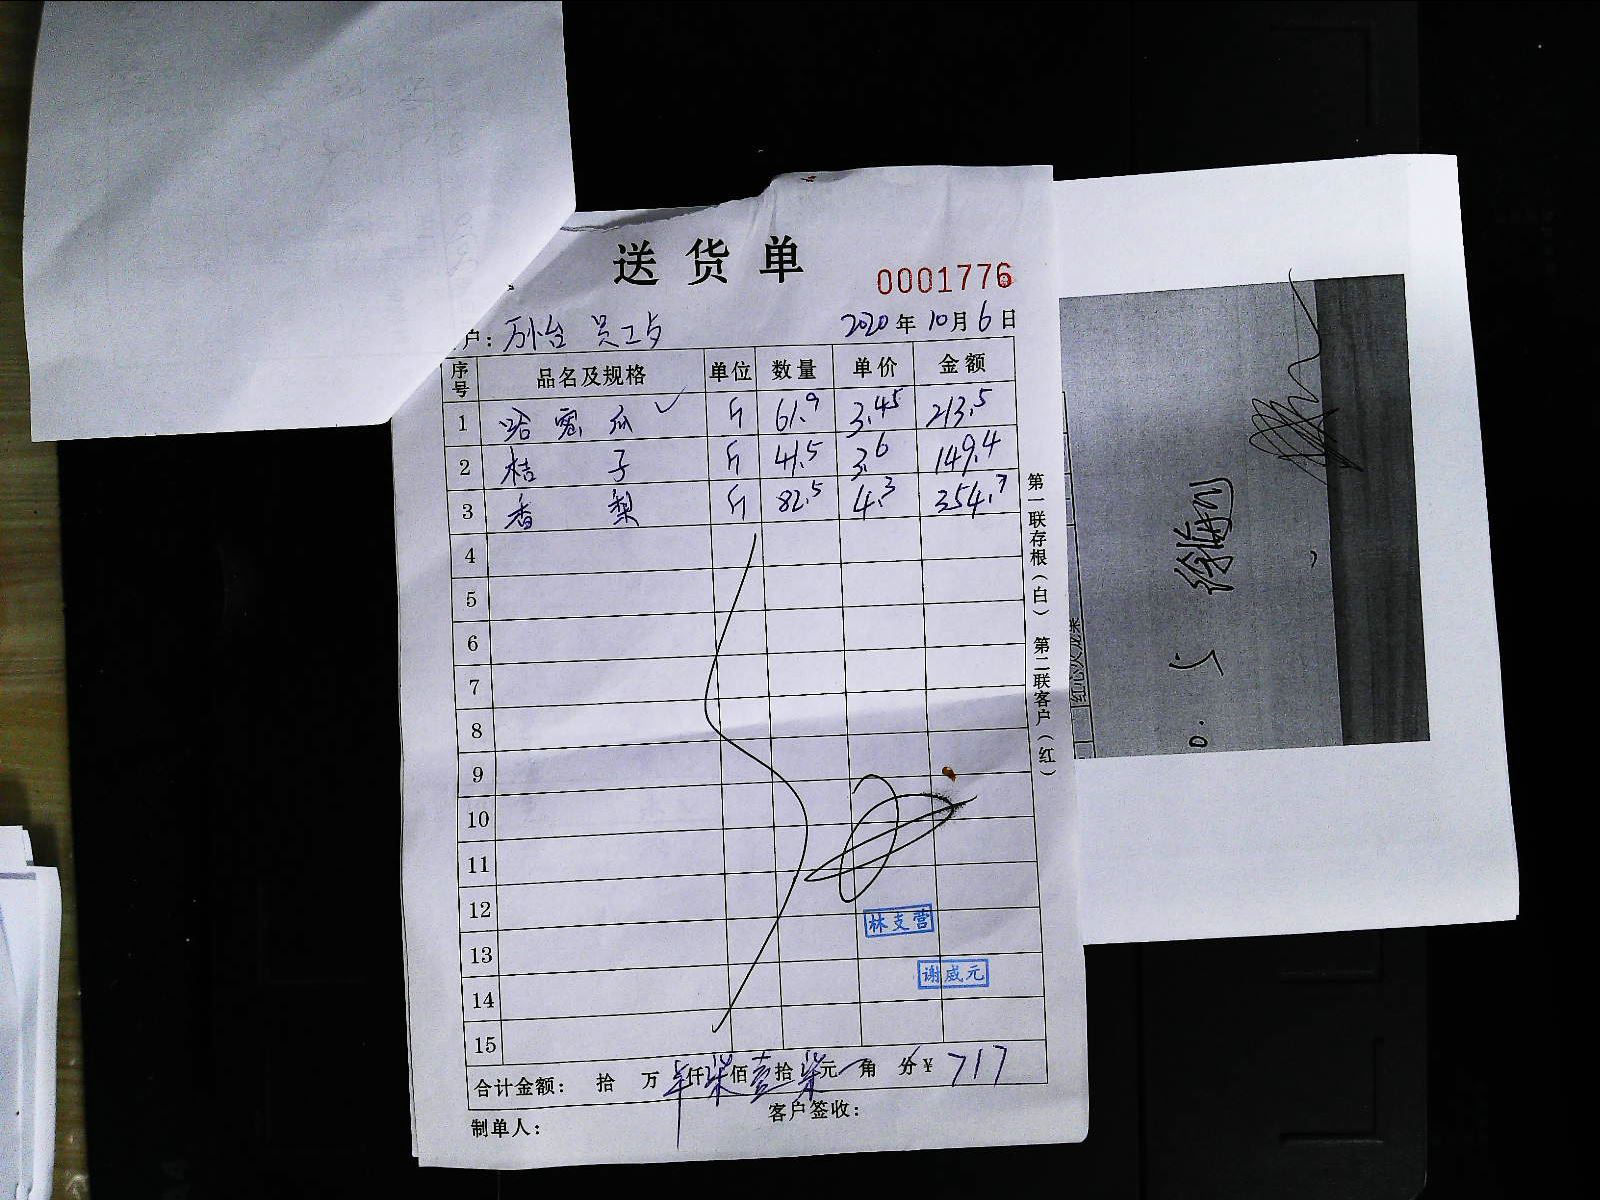 送货单
0001776
户：万怡 员工卢
2020年10月6日
序号 品名及规格 单位 数量 单价 金额
1 哈密瓜 斤 61.9 3.45 213.5
2 桔子 斤 41.5 3.6 149.4
3 香梨 斤 82.5 4.3 354.7
4
5
6
7
8
9
10
11
12
13
14
15
林支营
谢威元
合计金额： 拾 万 仟柒佰壹拾柒元 角 分¥ 717
制单人： 客户签收：
第一联存根（白） 第二联客户（红）
红心火龙果